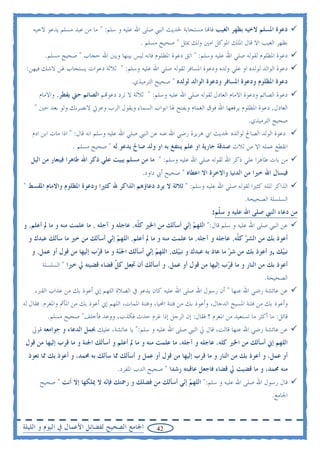 ✓ دعوة المسلم لاخيه بظهر الغيب فانها مستجابة لحديث النبي صلى الله عليه و سلم: " ما من عبد مسلم يدعو لاخيه
بظهر الغيب الا قال الملك الموكل امين ولك بمثل " صحيح مسلم .
✓ دعوة المظلوم لقوله صلى الله عليه و سلم: " اتق دعوة المظلوم فانه ليس بينها وبين الله حجاب " صحيح مسلم.
✓ دعوة الوالد لولده او على ولده ودعوة المسافر لقوله صلى الله عليه و سلم: " ثلاثة دعوات يستجاب لهن لاشك فيهن:
دعوة المظلوم ودعوة المسافر ودعوة الوالد لولده " صحيح الترمذي.
✓ دعوة الصائم ودعوة الامام العادل لقوله صلى الله عليه و سلم: " ثلاثة لا ترد دعوتهم الصائم حتى يفطر, والامام
العادل, دعوة المظلوم يرفعها الله فوق الغمام ويفتح لها ابواب السماء ويقول الرب وعزتي لانصرنك ولو بعد حين "
صحيح الترمذي.
✓ دعوة الولد الصالح لوالديه لحديث ابي هريرة رضي الله عنه عن النبي صلى الله عليه و سلم انه قال: " اذا مات ابن ادم
انقطع عمله الا من ثلاث صدقة جارية او علم ينتفع به او ولد صالح يدعو له " صحيح مسلم .
✓ من بات طاهرا على ذكر الله لقوله صلى الله عليه و سلم: " ما من مسلم يبيت على ذكر الله طاهرا فيتعار من اليل
فيسأل الله خيرا من الدنيا والاخرة الا اعطاه " صحيح أبي داود.
✓ الذاكر لله كثيرا لقوله صلى الله عليه و سلم: " ثلاثة لا يرد دعاؤهم الذاكر الله كثيرا ودعوة المظلوم والامام المقسط "
السلسلة الصحيحة.
من دعاء النبي صلى الله عليه و سلم:
✓ عن النبي صلى الله عليه و سلم قال:" اللهمّ إني أسألك من الخير كلّه, عاجله و آجله , ما علمت منه و ما لم أعلم, و
أعوذ بك من الشرّ كلّه, عاجله و آجله, ما علمت منه و ما لم أعلم. اللهمّ إني أسألك من خير ما سألك عبدك و
نبيّك ,و أعوذ بك من شرّ ما عاذ به عبدك و نبيّك. اللهمّ إني أسألك الجنّة و ما قرّب إليها من قول أو عمل, و
أعوذ بك من النار و ما قرّب إليها من قول أو عمل, و أسألك أن تجعل كلّ قضاء قضيته لي خيرا " السلسلة
الصحيحة.
✓ عن عائشة رضي الله عنها " أن رسول الله صلى الله عليه كان يدعو في الصلاة اللهم إني أعوذ بك من عذاب القبر,
وأعوذ بك من فتنة المسيح الدجال, وأعوذ بك من فتنة المحيا, وفتنة الممات, اللهم إني أعوذ بك من المأثم والمغرم. فقال له
قائل: ما أكثر ما تستعيذ من المغرم ؟ فقال: إن الرجل إذا غرم حدث فكذب, ووعد فأخلف" صحيح مسلم.
✓ عن عائشة رضي الله عنها قالت, قال لي النبي صلى الله عليه و سلم:" يا عائشة, عليك بجمل الدعاء و جوامعه قولي
اللهم إني أسألك من الخير كله, عاجله و آجله, ما علمت منه و ما لم أعلم و أسألك الجنة و ما قرب إليها من قول
أو عمل, و أعوذ بك من النار و ما قرب إليها من قول أو عمل و أسألك مما سألك به محمد, و أعوذ بك مما تعوذ
منه محمد, و ما قضيت لي قضاء فاجعل عاقبته رشدا " صحيح الدب المفرد.
✓ قال رسول الله صلى الله عليه و سلم:" اللهمّ إني أسألك من فضلك و رحمتك فإنه لا يملكها إلا أنت " صحيح
الجامع.
42 الجامع الصحيح لفضائل الأعمال في اليوم و الليلة